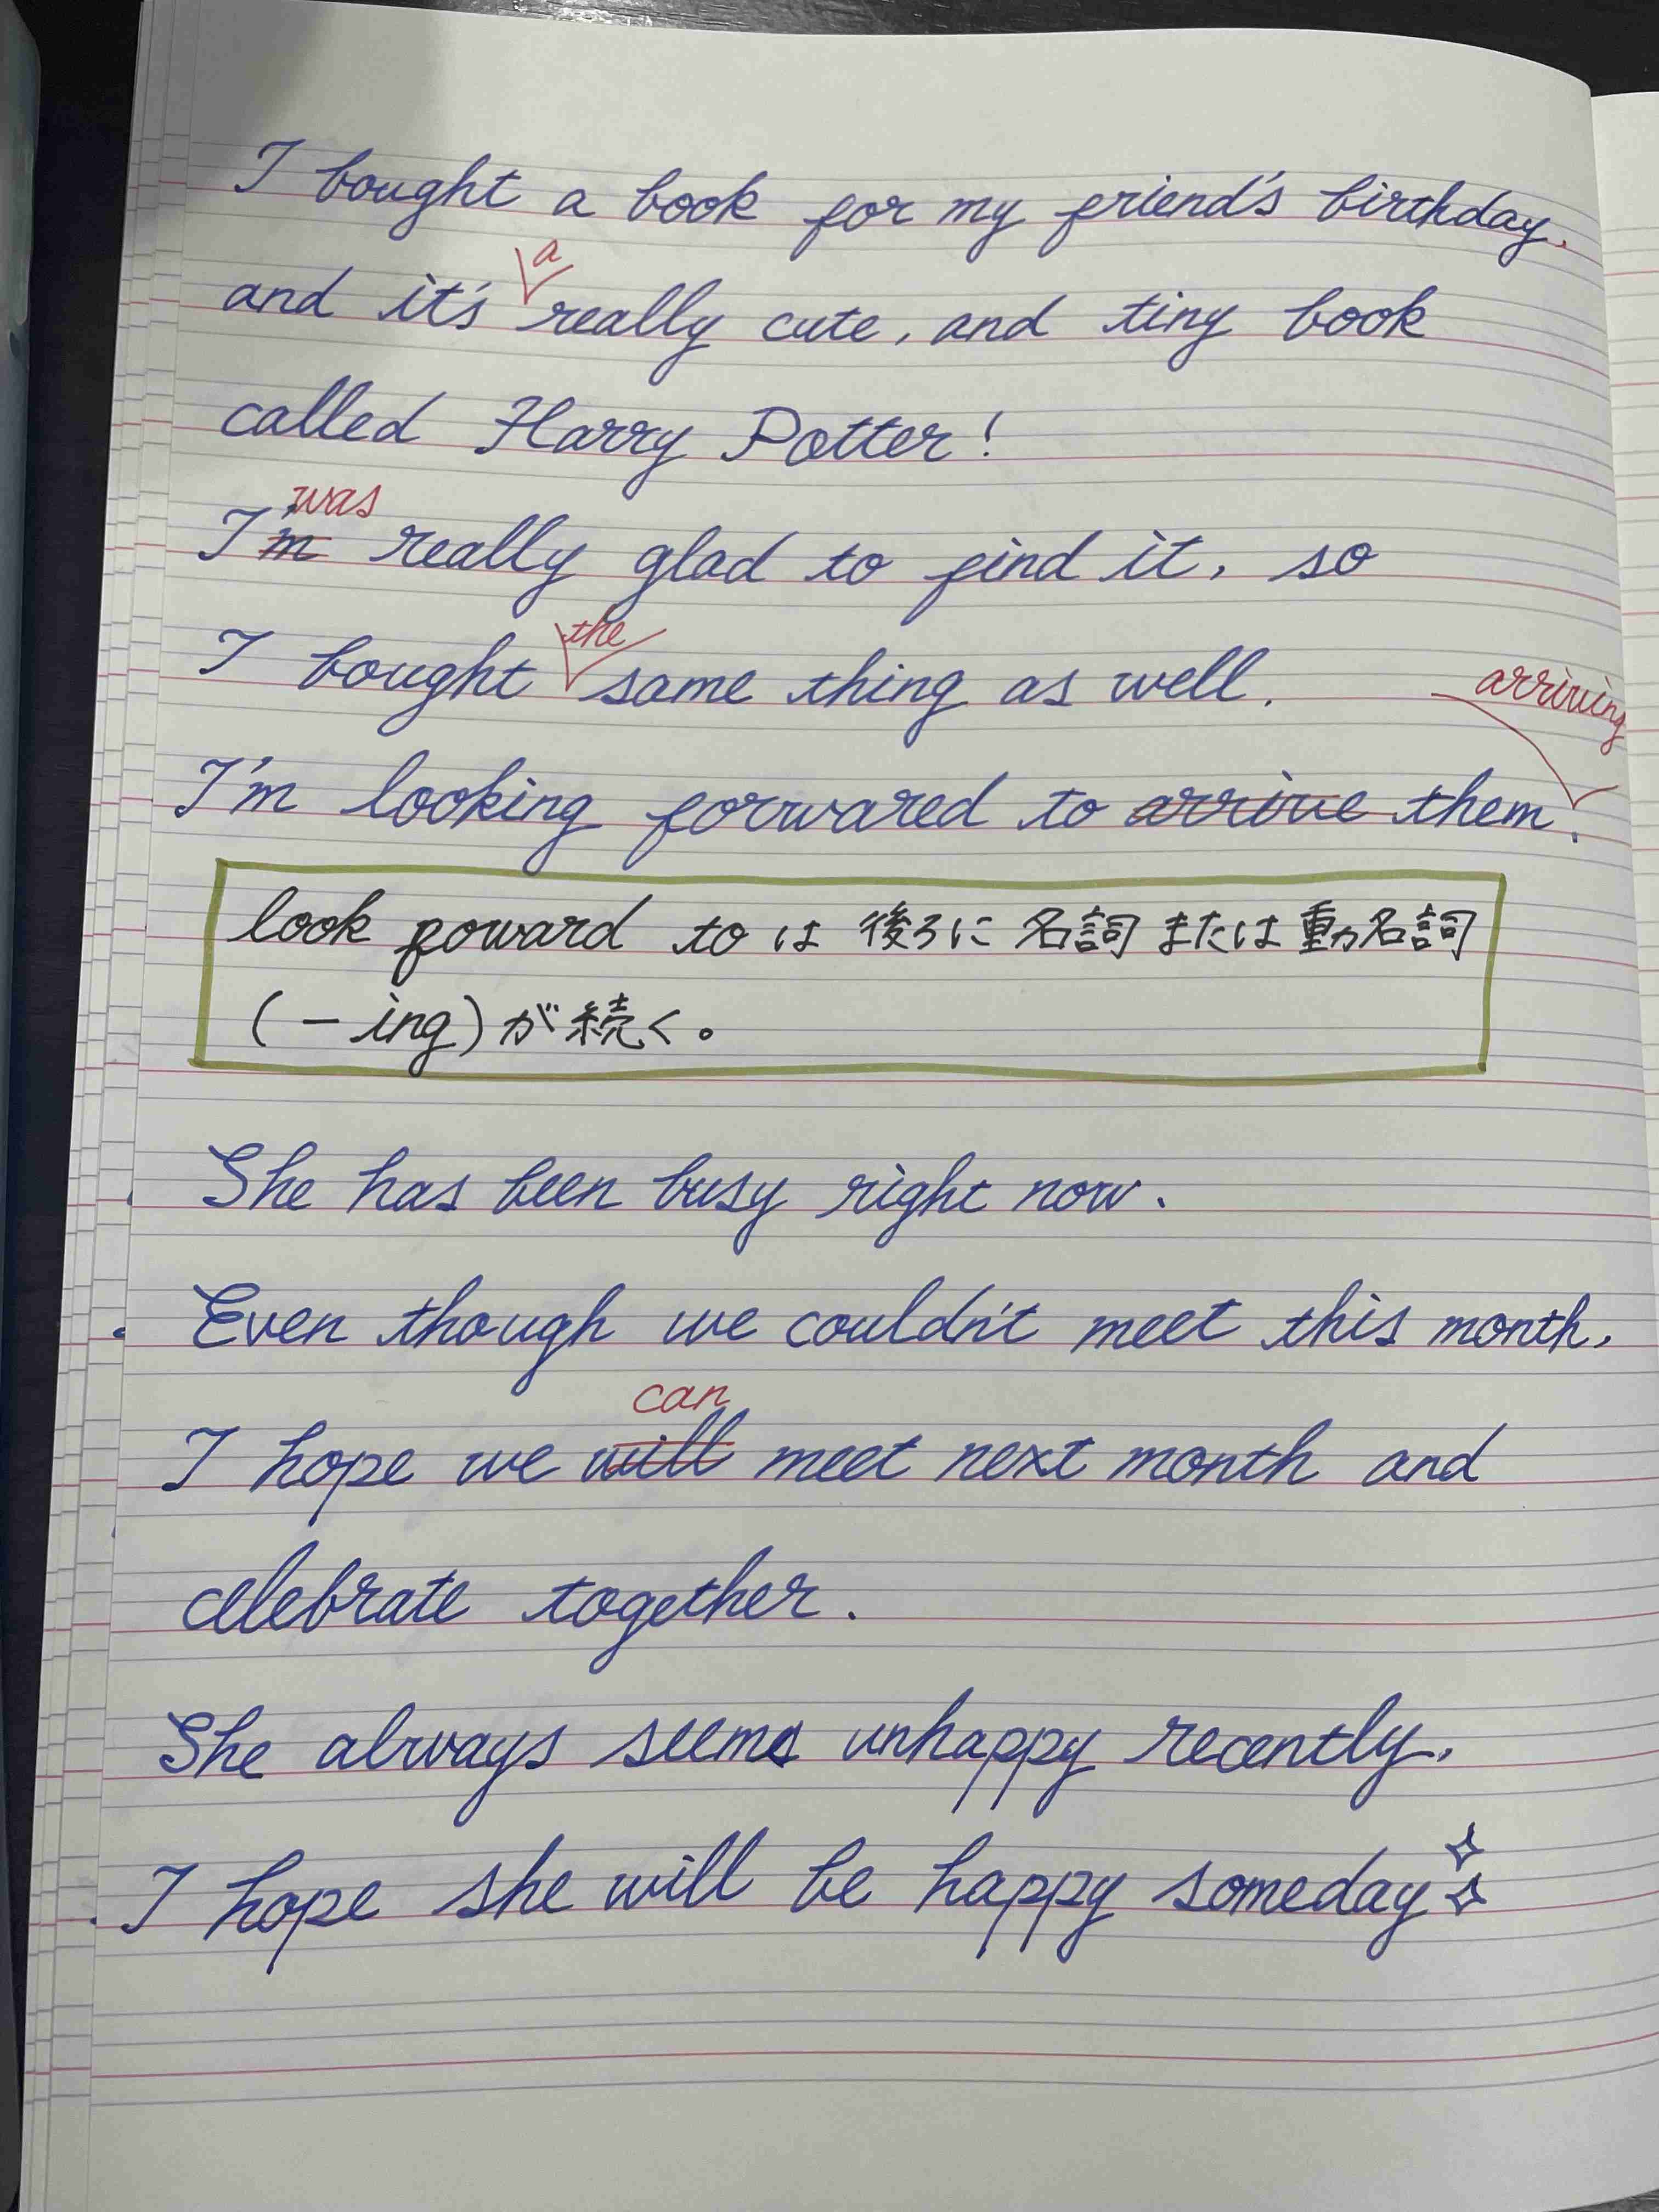 I bought a book for my friend's birthday.
and it's a really cute, and tiny book
called Harry Potter!
I'm was really glad to find it, so
I bought the same thing as well.
I'm looking forwared to arrive them arriving.
look foward to は 後ろに 名詞 または 動名詞
(-ing)が続く。
She has been busy right now.
Even though we couldn't meet this month,
I hope we will can meet next month and
celebrate together.
She always seems unhappy recently.
I hope she will be happy someday